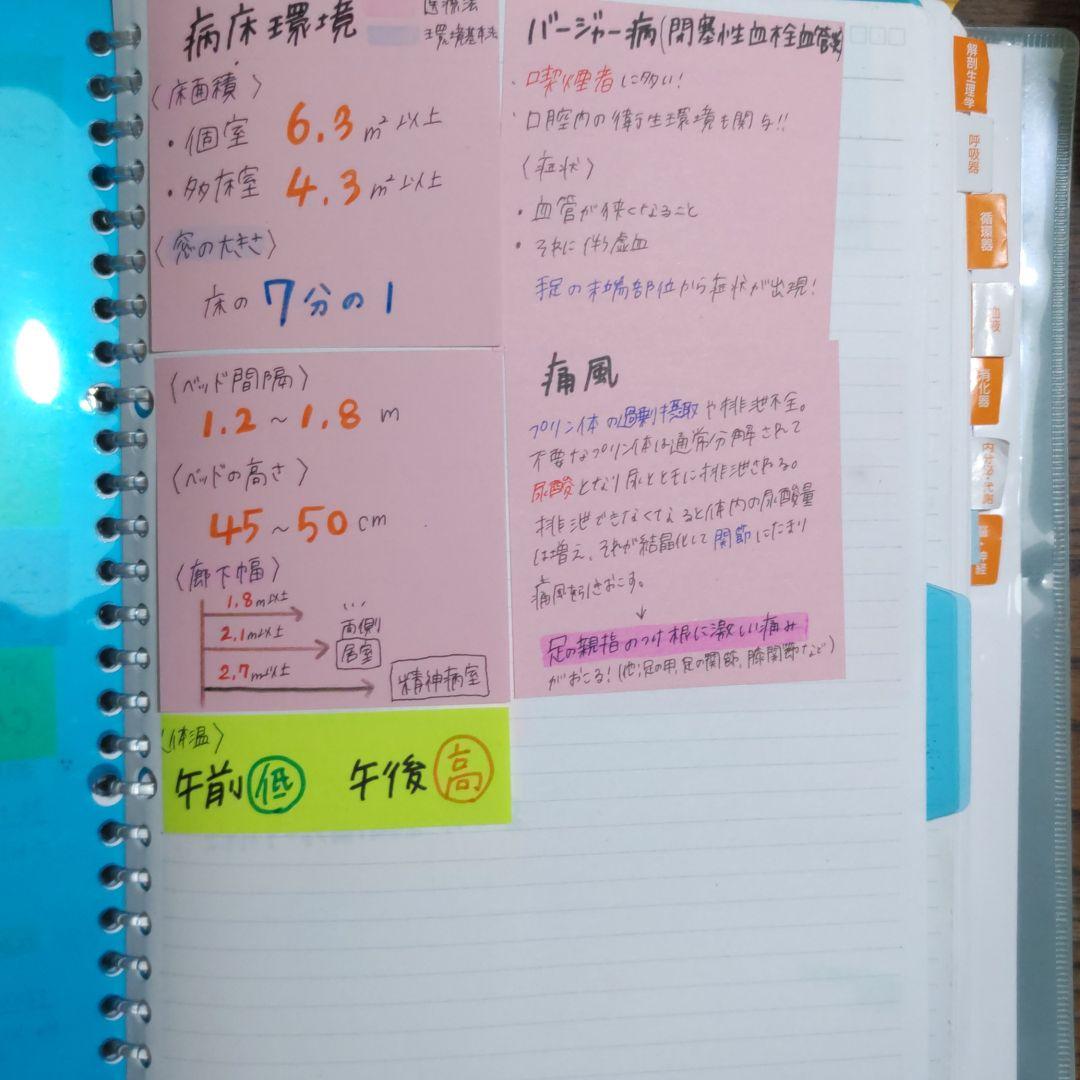 病床環境
医療法
環境基本法
〈床面積〉
・個室 6.3㎡以上
・多床室 4.3㎡以上
〈窓の大きさ〉
床の7分の1
〈ベッド間隔〉
1.2〜1.8m
〈ベッドの高さ〉
45〜50cm
〈廊下幅〉
1.8m以上
2.1m以上
両側
居室
2.7m以上
精神病室
〈体温〉
午前低 午後高
バージャー病(閉塞性血栓血管炎)
・喫煙者に多い!
・口腔内の衛生環境も関与!!
〈症状〉
・血管が狭くなること
・それに伴う虚血
手足の末端部位から症状が出現!
痛風
プリン体の過剰摂取や排泄不全。
不要なプリン体は通常分解されて
尿酸となり尿とともに排泄される。
排泄できなくなると体内の尿酸量
は増え、それが結晶化して関節にたまり
痛風を引きおこす。
↓
足の親指のつけ根に激しい痛み
がおこる!(他、足の甲、足の関節、膝関節など)
解剖生理学
呼吸器
循環器
血液
消化器
内分泌・代謝
脳・神経